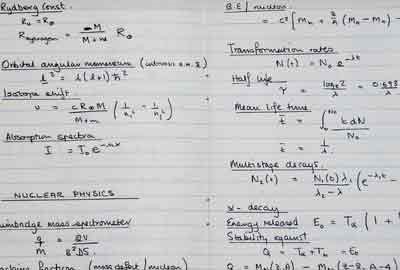 Rydberg Const.
R₀ = R∞
R_hydrogen = M / (M + m) R∞
Orbital angular momentum
l² = l(l+1)ħ²
Isotope shift.
υ = cR∞M / (M+m) (1/n₁² - 1/n₂²)
Absorption spectra
I = I₀ e
NUCLEAR PHYSICS
mass spectrometer
q/m = 2V / B²DS
fraction (mass defect / nucleon)
B.E / nucleon
= c² [Mₙ + (Mₕ - Mₙ) -
Transformation rates
N(t) = N₀ e^-λt
Half life
τ = logₑ2 / λ = 0.693 / λ
Mean life time
t̄ = ∫ t dN / N₀
t̄ = 1/λ
Multistage decays.
N₂(t) = N₁(0) λ₁ / (λ₂ - λ₁) (e^-λ₁t -
α - decay
Energy released E₀ = Tα (1 +
Stability against
Q = Tα + Tₕ = E₀
(Z-2, A-4)